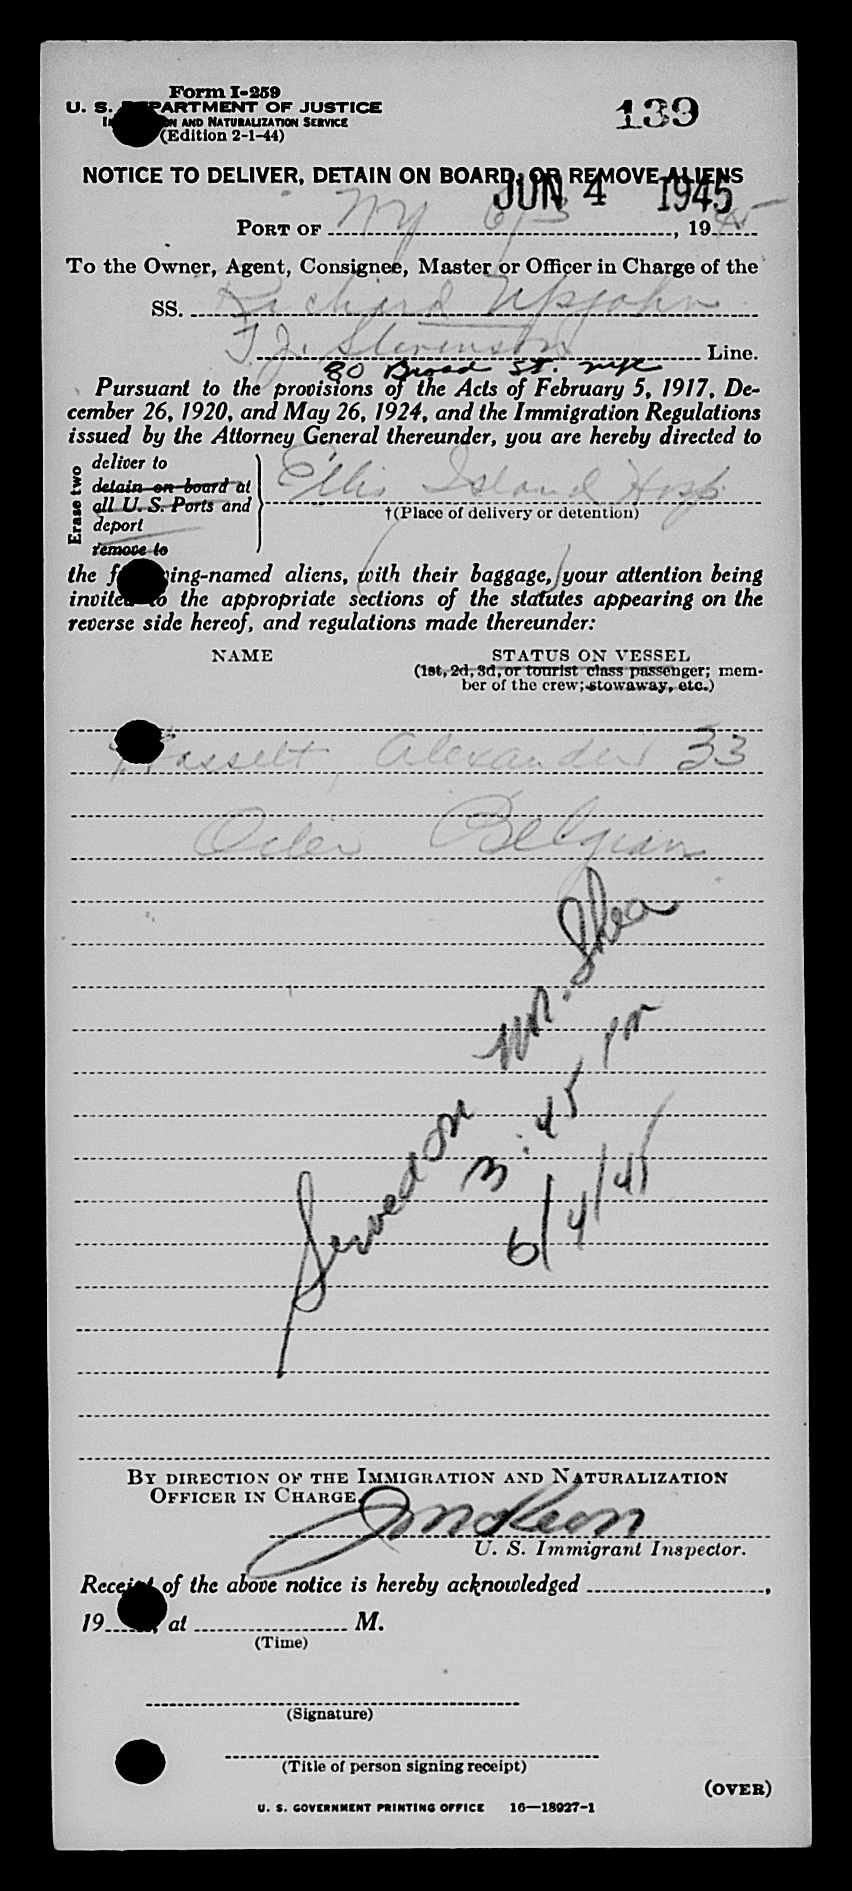 Form I-259
139
U. S. DEPARTMENT OF JUSTICE
AND NATURALIZATION SERVICE
(Edition 2-1-44)
NOTICE TO DELIVER, DETAIN ON BOARD, OR REMOVE ALIENS
JUN 4 1945
PORT OF NY 6/3, 1945
To the Owner, Agent, Consignee, Master or Officer in Charge of the
SS. Richard Upjohn
T. J. Stevenson Line.
80 Broad St. NYC
Pursuant to the provisions of the Acts of February 5, 1917, De-
cember 26, 1920, and May 26, 1924, and the Immigration Regulations
issued by the Attorney General thereunder, you are hereby directed to
Erase two
deliver to
detain on board at
all U. S. Ports and
deport
remove to
Ellis Island Hosp
†(Place of delivery or detention)
the following-named aliens, (with their baggage,) your attention being
invited to the appropriate sections of the statutes appearing on the
reverse side hereof, and regulations made thereunder:
NAME STATUS ON VESSEL
(1st, 2d, 3d, or tourist class passenger; mem-
ber of the crew; stowaway, etc.)
Alexander 33
Oiler Belgian
Served on Mr. Shea
3:45 PM
6/4/45
BY DIRECTION OF THE IMMIGRATION AND NATURALIZATION
OFFICER IN CHARGE.
U. S. Immigrant Inspector.
Receipt of the above notice is hereby acknowledged ,
19 , at M.
(Time)
(Signature)
(Title of person signing receipt)
(OVER)
U. S. GOVERNMENT PRINTING OFFICE 16—18927-1